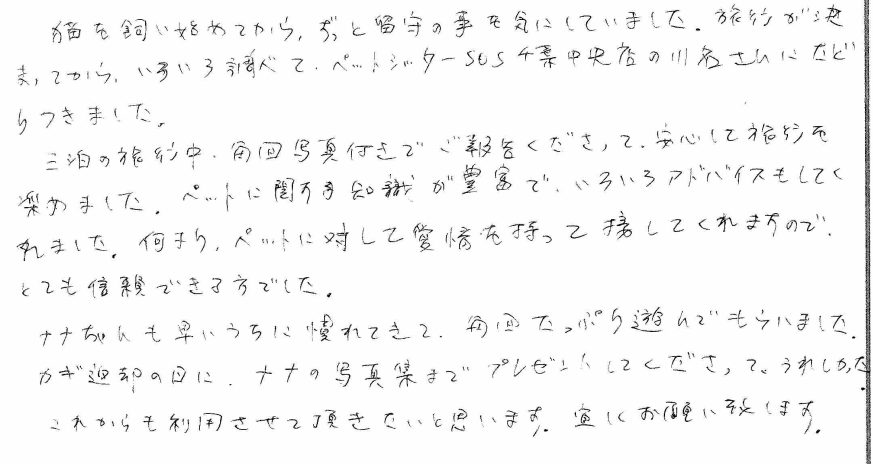 猫を飼い始めてから、ずっと留守の事を気にしていました。旅行が決
まってから、いろいろ調べて、ペットシッターSOS千葉中央店の川名さんにたど
りつきました。
三泊の旅行中、毎回写真付きでご報告くださって、安心して旅行を
楽めました。ペットに関する知識が豊富で、いろいろアドバイスもしてく
れました。何より、ペットに対して愛情を持って接してくれますので、
とても信頼できる方でした。
ナナちゃんも早いうちに慣れてきて、毎回たっぷり遊んでもらいました。
カギ返却の日に、ナナの写真集までプレゼントしてくださって、うれしかった。
これからも利用させて頂きたいと思います。宜しくお願い致します。